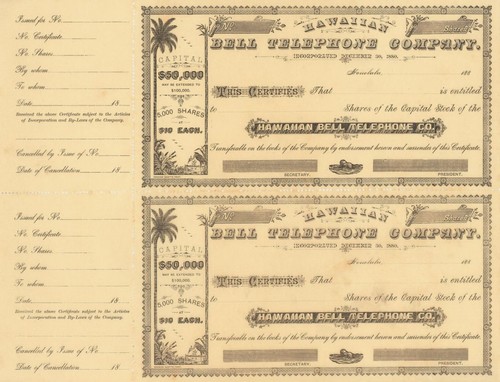 Issued for No.
No. Certificate.
No. Shares.
By whom
To whom
Date. 18
Received the above Certificate subject to the Articles
of Incorporation and By-Laws of the Company.
Cancelled by Issue of No.
Date of Cancellation. 18
CAPITAL
$50,000
MAY BE EXTENDED TO
$100,000.
5,000 SHARES
AT
$10 EACH.
No.
Shares
HAWAIIAN
BELL TELEPHONE COMPANY.
INCORPORATED DECEMBER 30, 1880.
Honolulu, 188
This Certifies That is entitled
to Shares of the Capital Stock of the
HAWAIIAN BELL TELEPHONE CO.
Transferable on the books of the Company by endorsement hereon and surrender of this Certificate.
SECRETARY. PRESIDENT.
Issued for No.
No. Certificate.
No. Shares.
By whom
To whom
Date. 18
Received the above Certificate subject to the Articles
of Incorporation and By-Laws of the Company.
Cancelled by Issue of No.
Date of Cancellation. 18
CAPITAL
$50,000
MAY BE EXTENDED TO
$100,000.
5,000 SHARES
AT
$10 EACH.
No.
Shares
HAWAIIAN
BELL TELEPHONE COMPANY.
INCORPORATED DECEMBER 30, 1880.
Honolulu, 188
This Certifies That is entitled
to Shares of the Capital Stock of the
HAWAIIAN BELL TELEPHONE CO.
Transferable on the books of the Company by endorsement hereon and surrender of this Certificate.
SECRETARY. PRESIDENT.